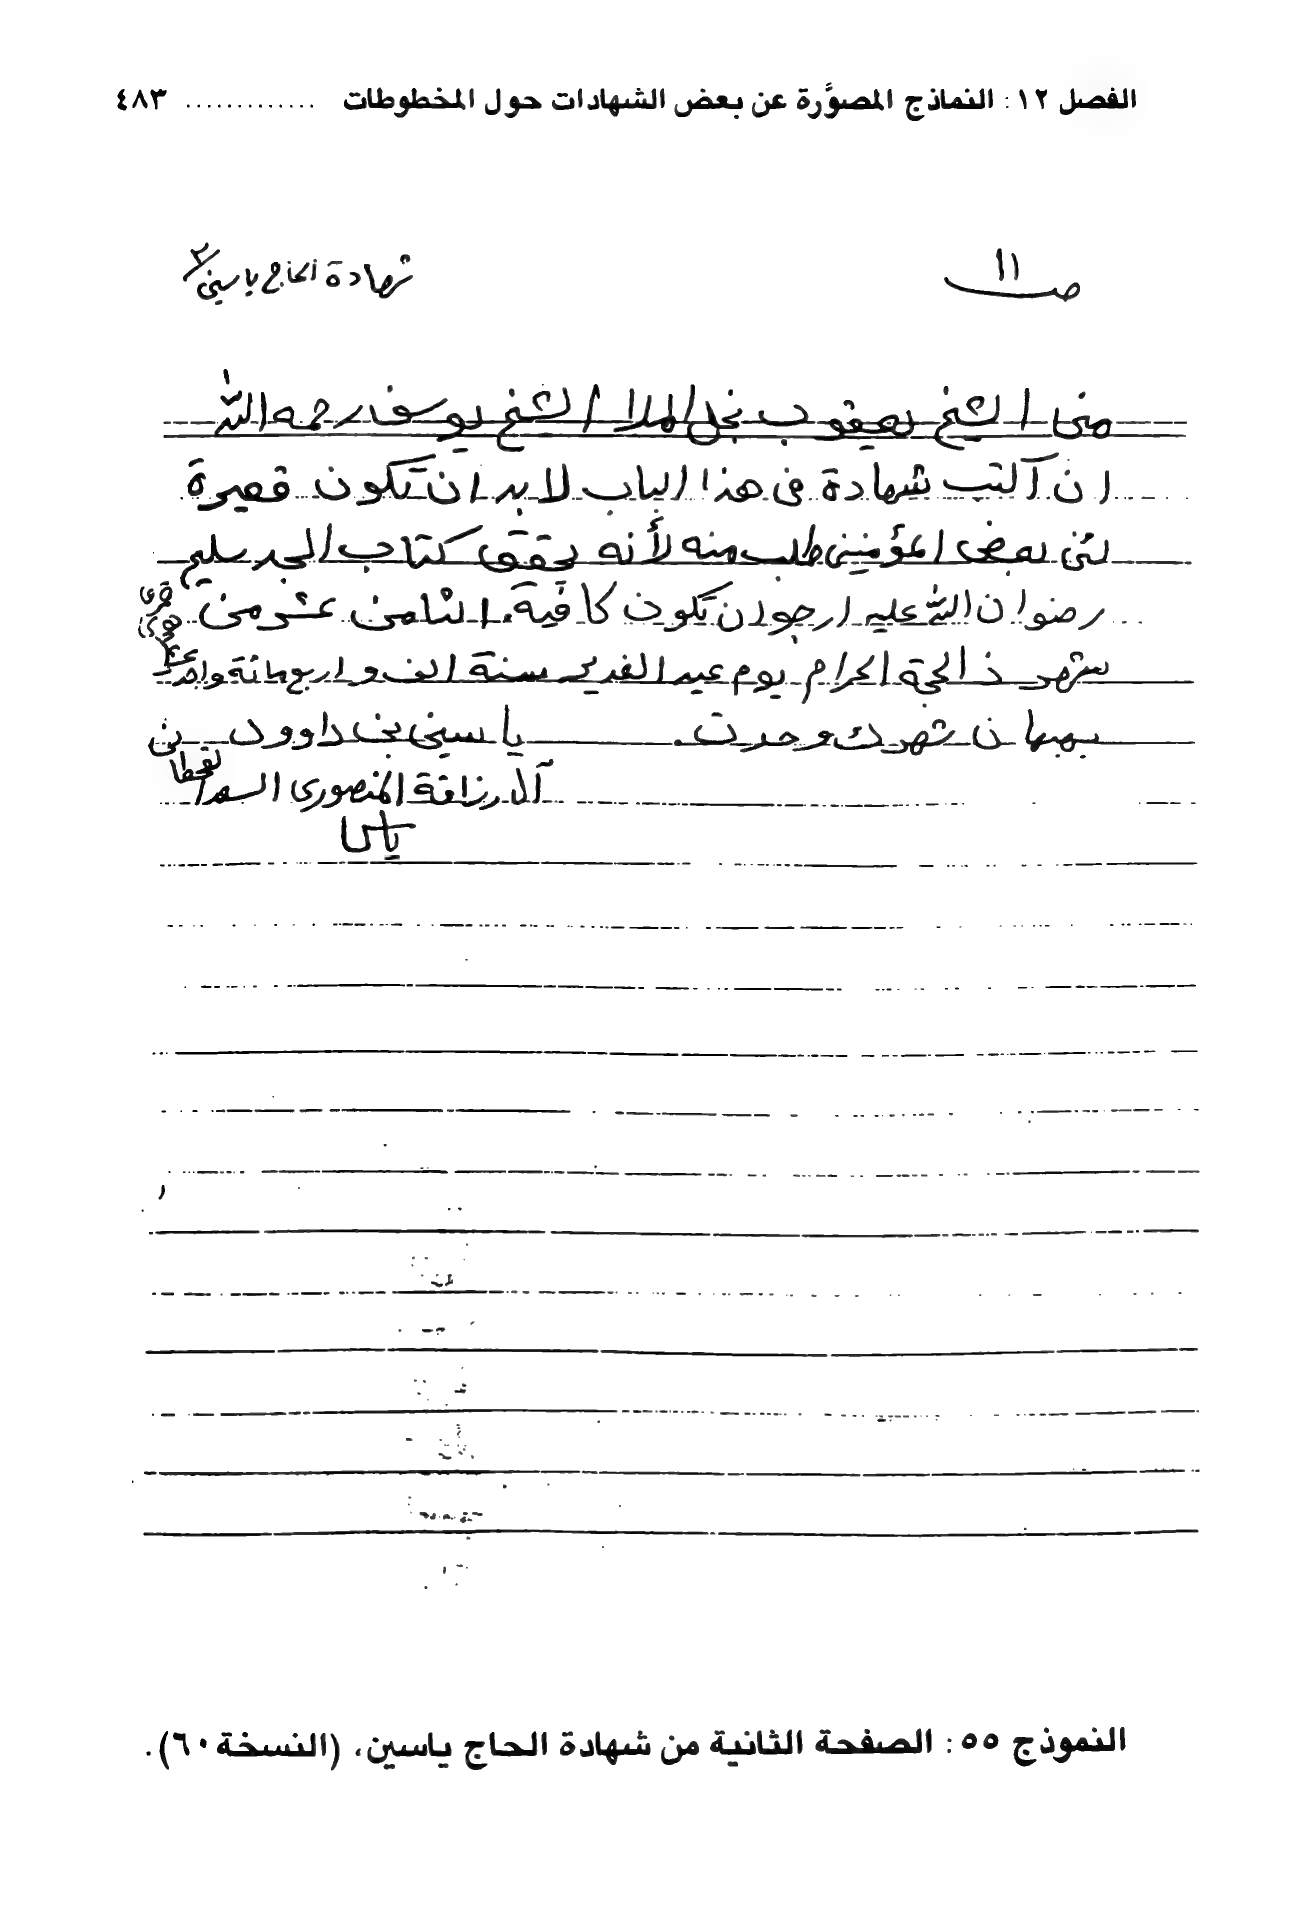 الفصل ١٢ : النماذج المصوَّرة عن بعض الشهادات حول المخطوطات ............. ٤٨٣
صـ ١١
شهادة الحاج ياسين /٢
منى الشيخ يعقوب نجل الملا الشيخ يوسف رحمه الله
ان آكتب شهادة فى هذا الباب لا بد ان تكون قصيرة
لئن بعض المؤمنين طلب منه لأنه يحقق كتاب الجد سليم
رضوان الله عليه ارجو ان تكون كافية. الثامن عشر من
شهر ذ الحجة الحرام يوم عيد الغدير سنة الف و اربع مائة واحد
بهبهان شهدت وحدت. ياسين بن داوود بن
آل رزاقة المنصورى
النموذج ٥٥ : الصفحة الثانية من شهادة الحاج ياسين، (النسخة ٦٠).